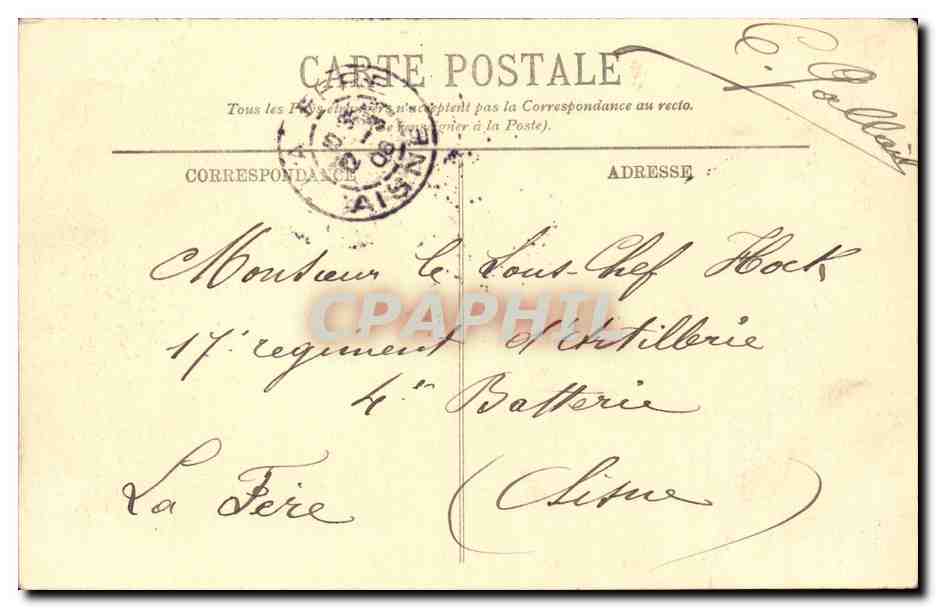 CARTE POSTALE
Tous les Pays étrangers n'acceptent pas la Correspondance au recto.
(Se renseigner à la Poste).
CORRESPONDANCE
ADRESSE
AISNE
08
Monsieur le Sous-Chef Hock
CPAPHIL
17e regiment d'Artillerie
4e Batterie
La Fère (Aisne)